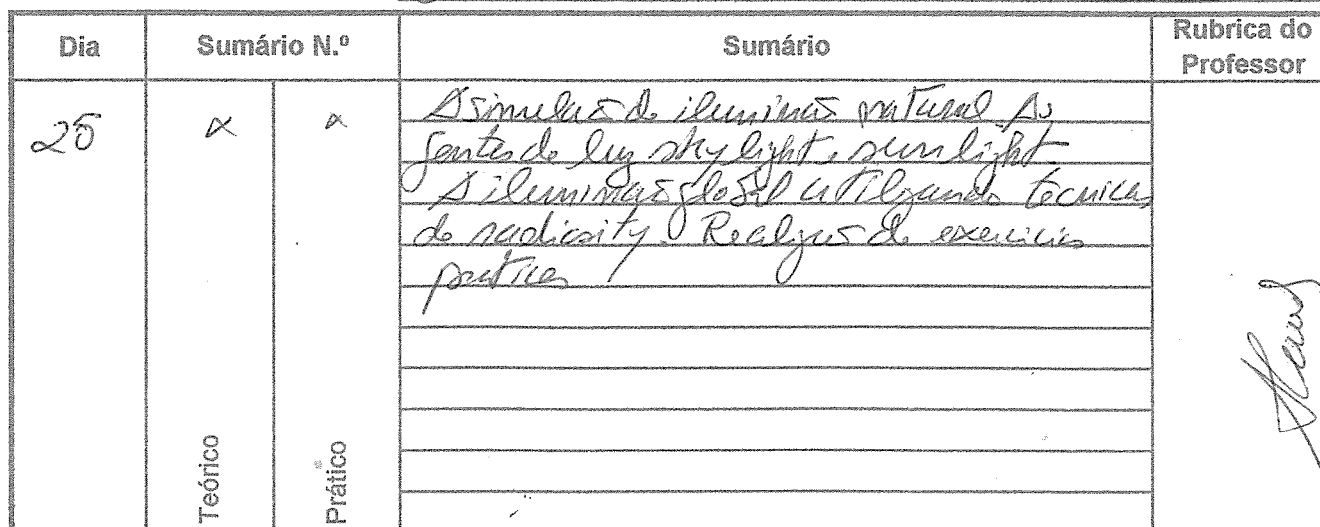 Dia
Sumário N.º
Sumário
Rubrica do
Professor
25
x
x
A simulação de iluminação natural. As
fontes de luz skylight e sunlight.
A iluminação global utilizando técnicas
de radiosity. Realização de exercícios
práticos
Teórico
Prático